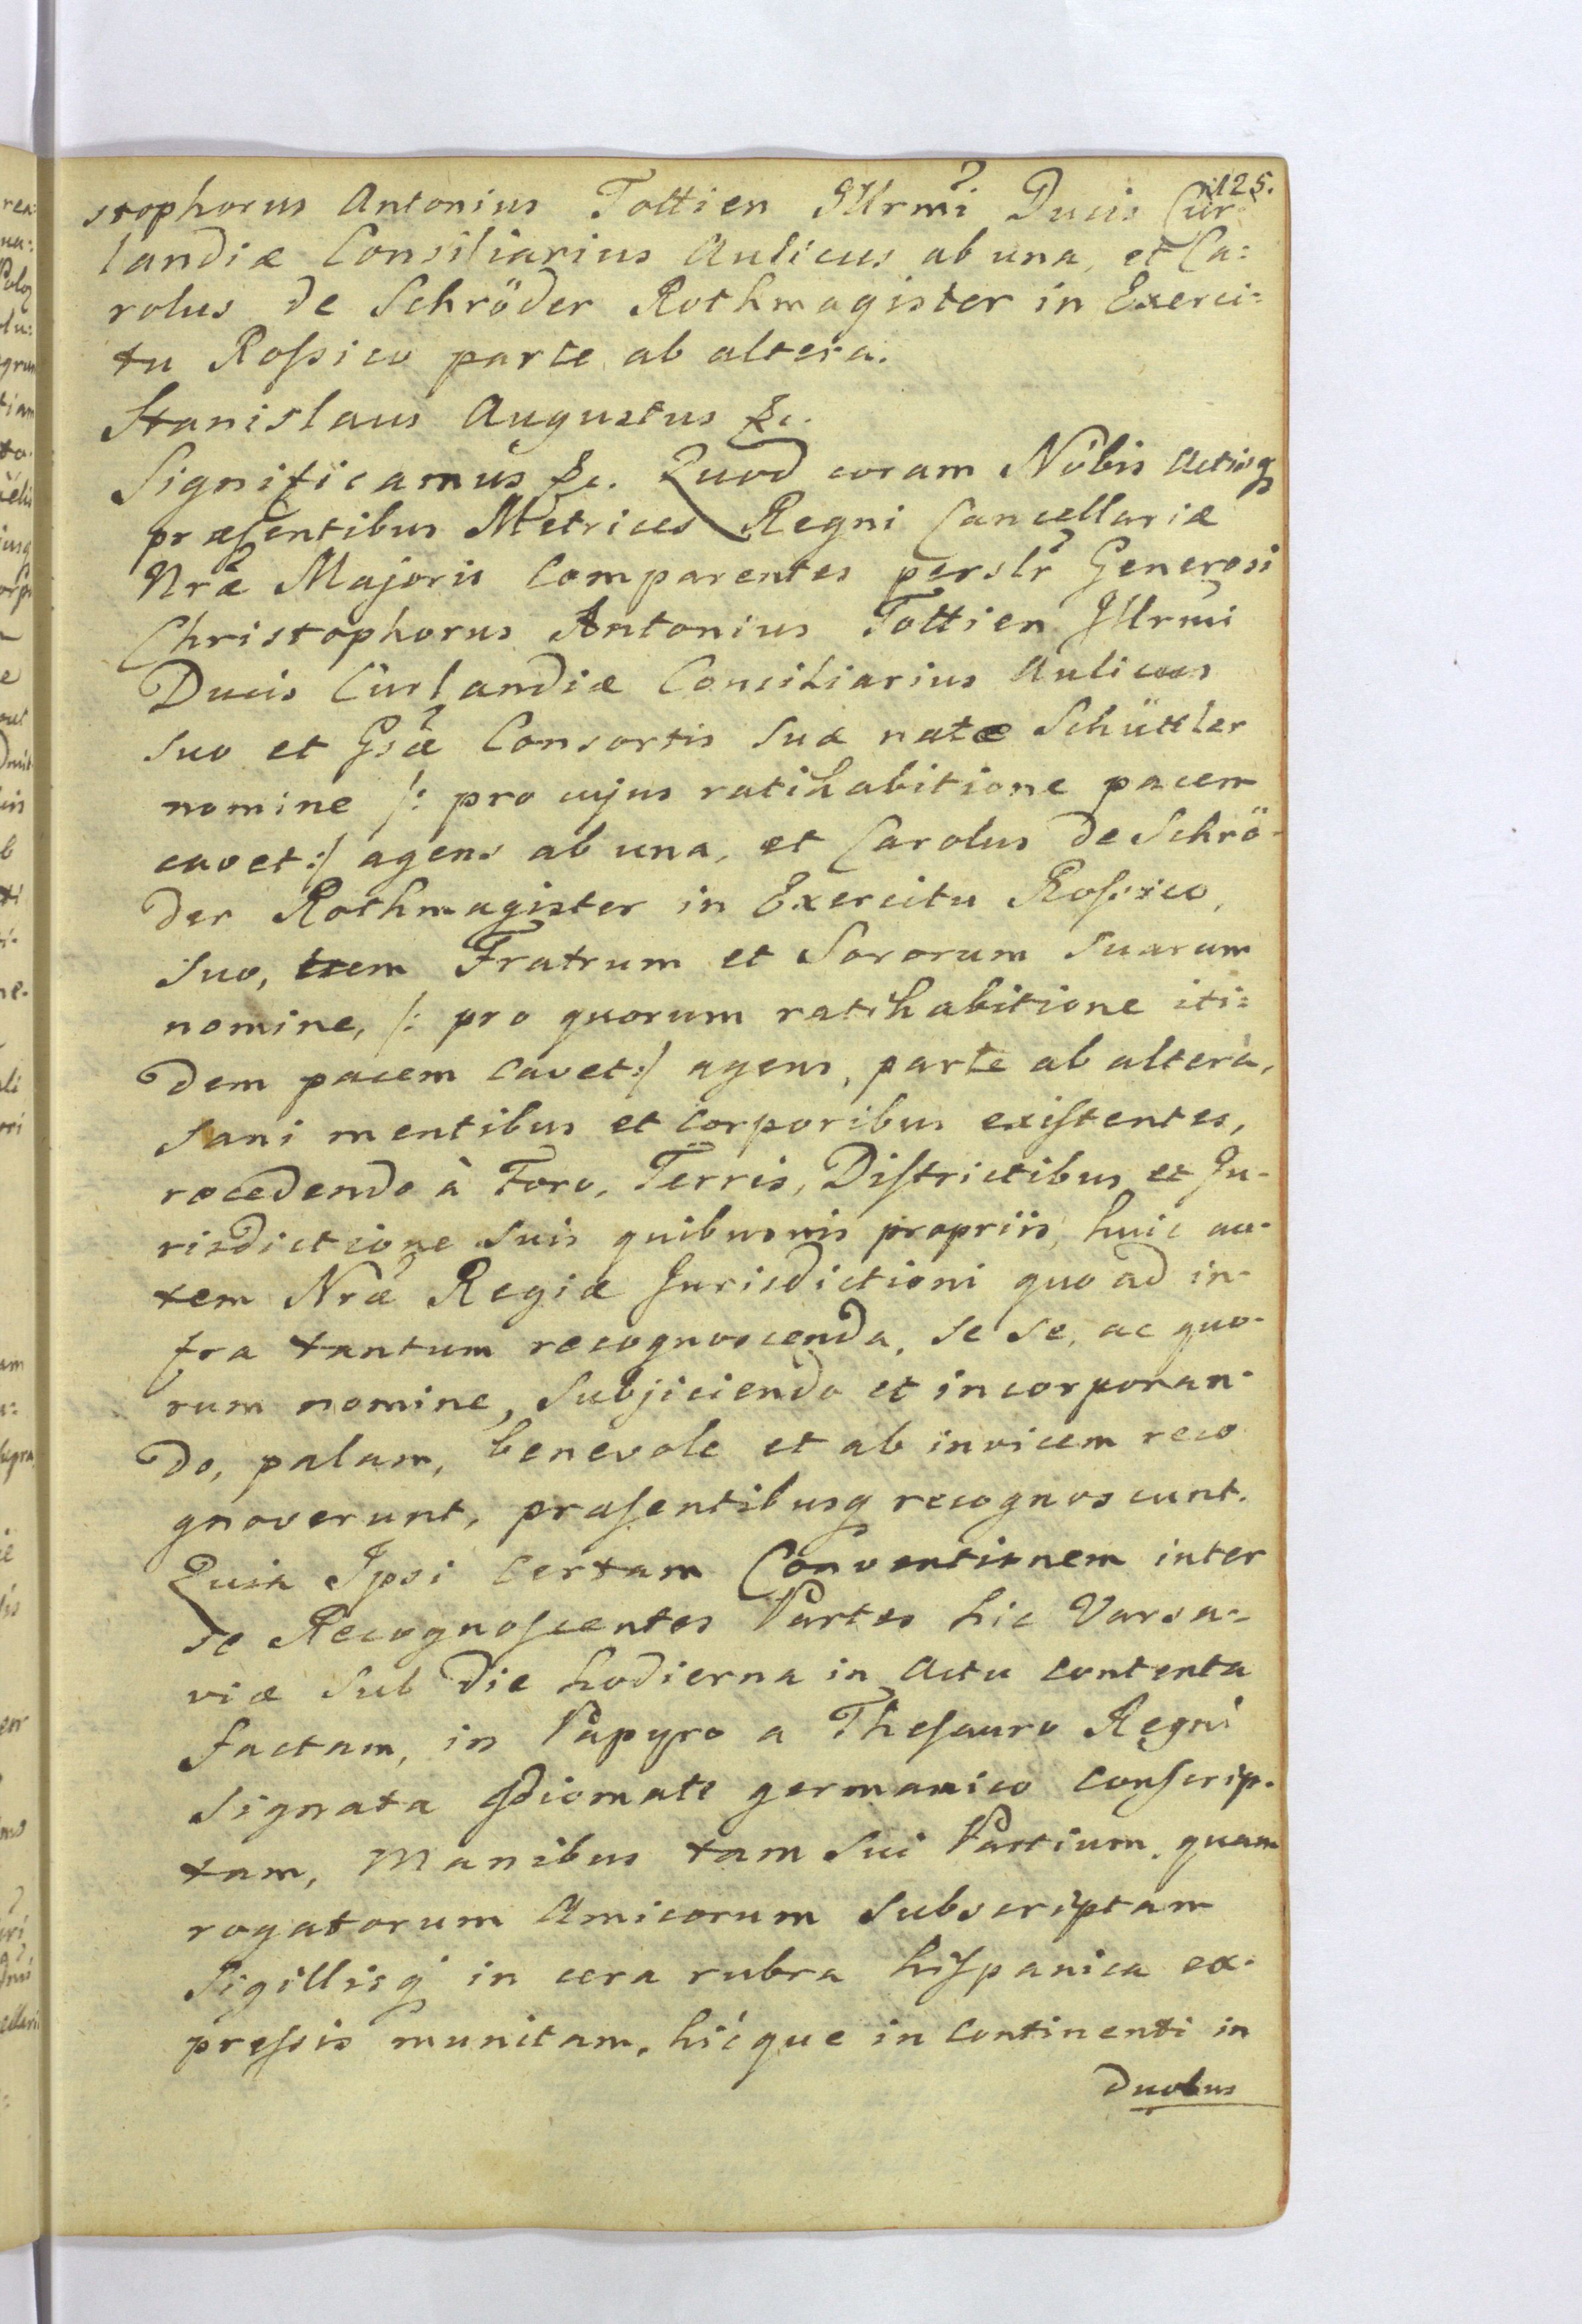 125.
stophorus Antonius Tottien Illrmi Ducis Cur
landiæ Consiliarius Aulicus ab una, et Ca:
rolus de Schröder Rothmagister in Exerci:
tu Roſsico parte ab altera.
Stanislaus Augustus &c.
Significamus &c. Quod coram Nobis Actisq
præſentibus Metrices Regni Cancellariæ
Nræ Majoris Comparentes perslr Generosi
Christophorus Antonius Tottien Illrmi
Ducis Curlandiæ Consiliarius Aulicus
suo et Gsæ Consortis suæ natæ Schüttler
nomine /: pro cujus ratihabitione pacem
cavet :/ agens ab una, et Carolus de Schrö-
der Rothmagister in Exercitu Roſsico,
suo, tum Fratrum et Sororum suarum
nomine, /: pro quorum ratihabitione iti:
dem pacem cavet :/ agens, parte ab altera,
sani mentibus et corporibus exiſtentes,
recedendo à Foro, Terris, Diſtrictibus et Ju-
risdictione suis quibusvis propriis, huic au-
tem Nræ Regiæ Jurisdictioni quo ad in-
fra tantum recognoscenda, se se, ac quo-
rum nomine, subjiciendo et incorporan-
do, palam, benevole et ab invicem reco
gnoverunt, præſentibusq recognoscunt.
Quia Ipsi Certam Conventionem inter
se Recognoſcentes Partes hic Varsa:
viæ sub die hodierna in Actu contenta
factam, in Papyro a Theſauro Regni
signata Idiomate germanico conſcrip-
tam, Manibus tam sui Partium, quam
rogatorum Amicorum subscriptam
Sigillisq in cera rubra hiſpanica ex-
preſsis munitam, hicque in continenti in
duobus